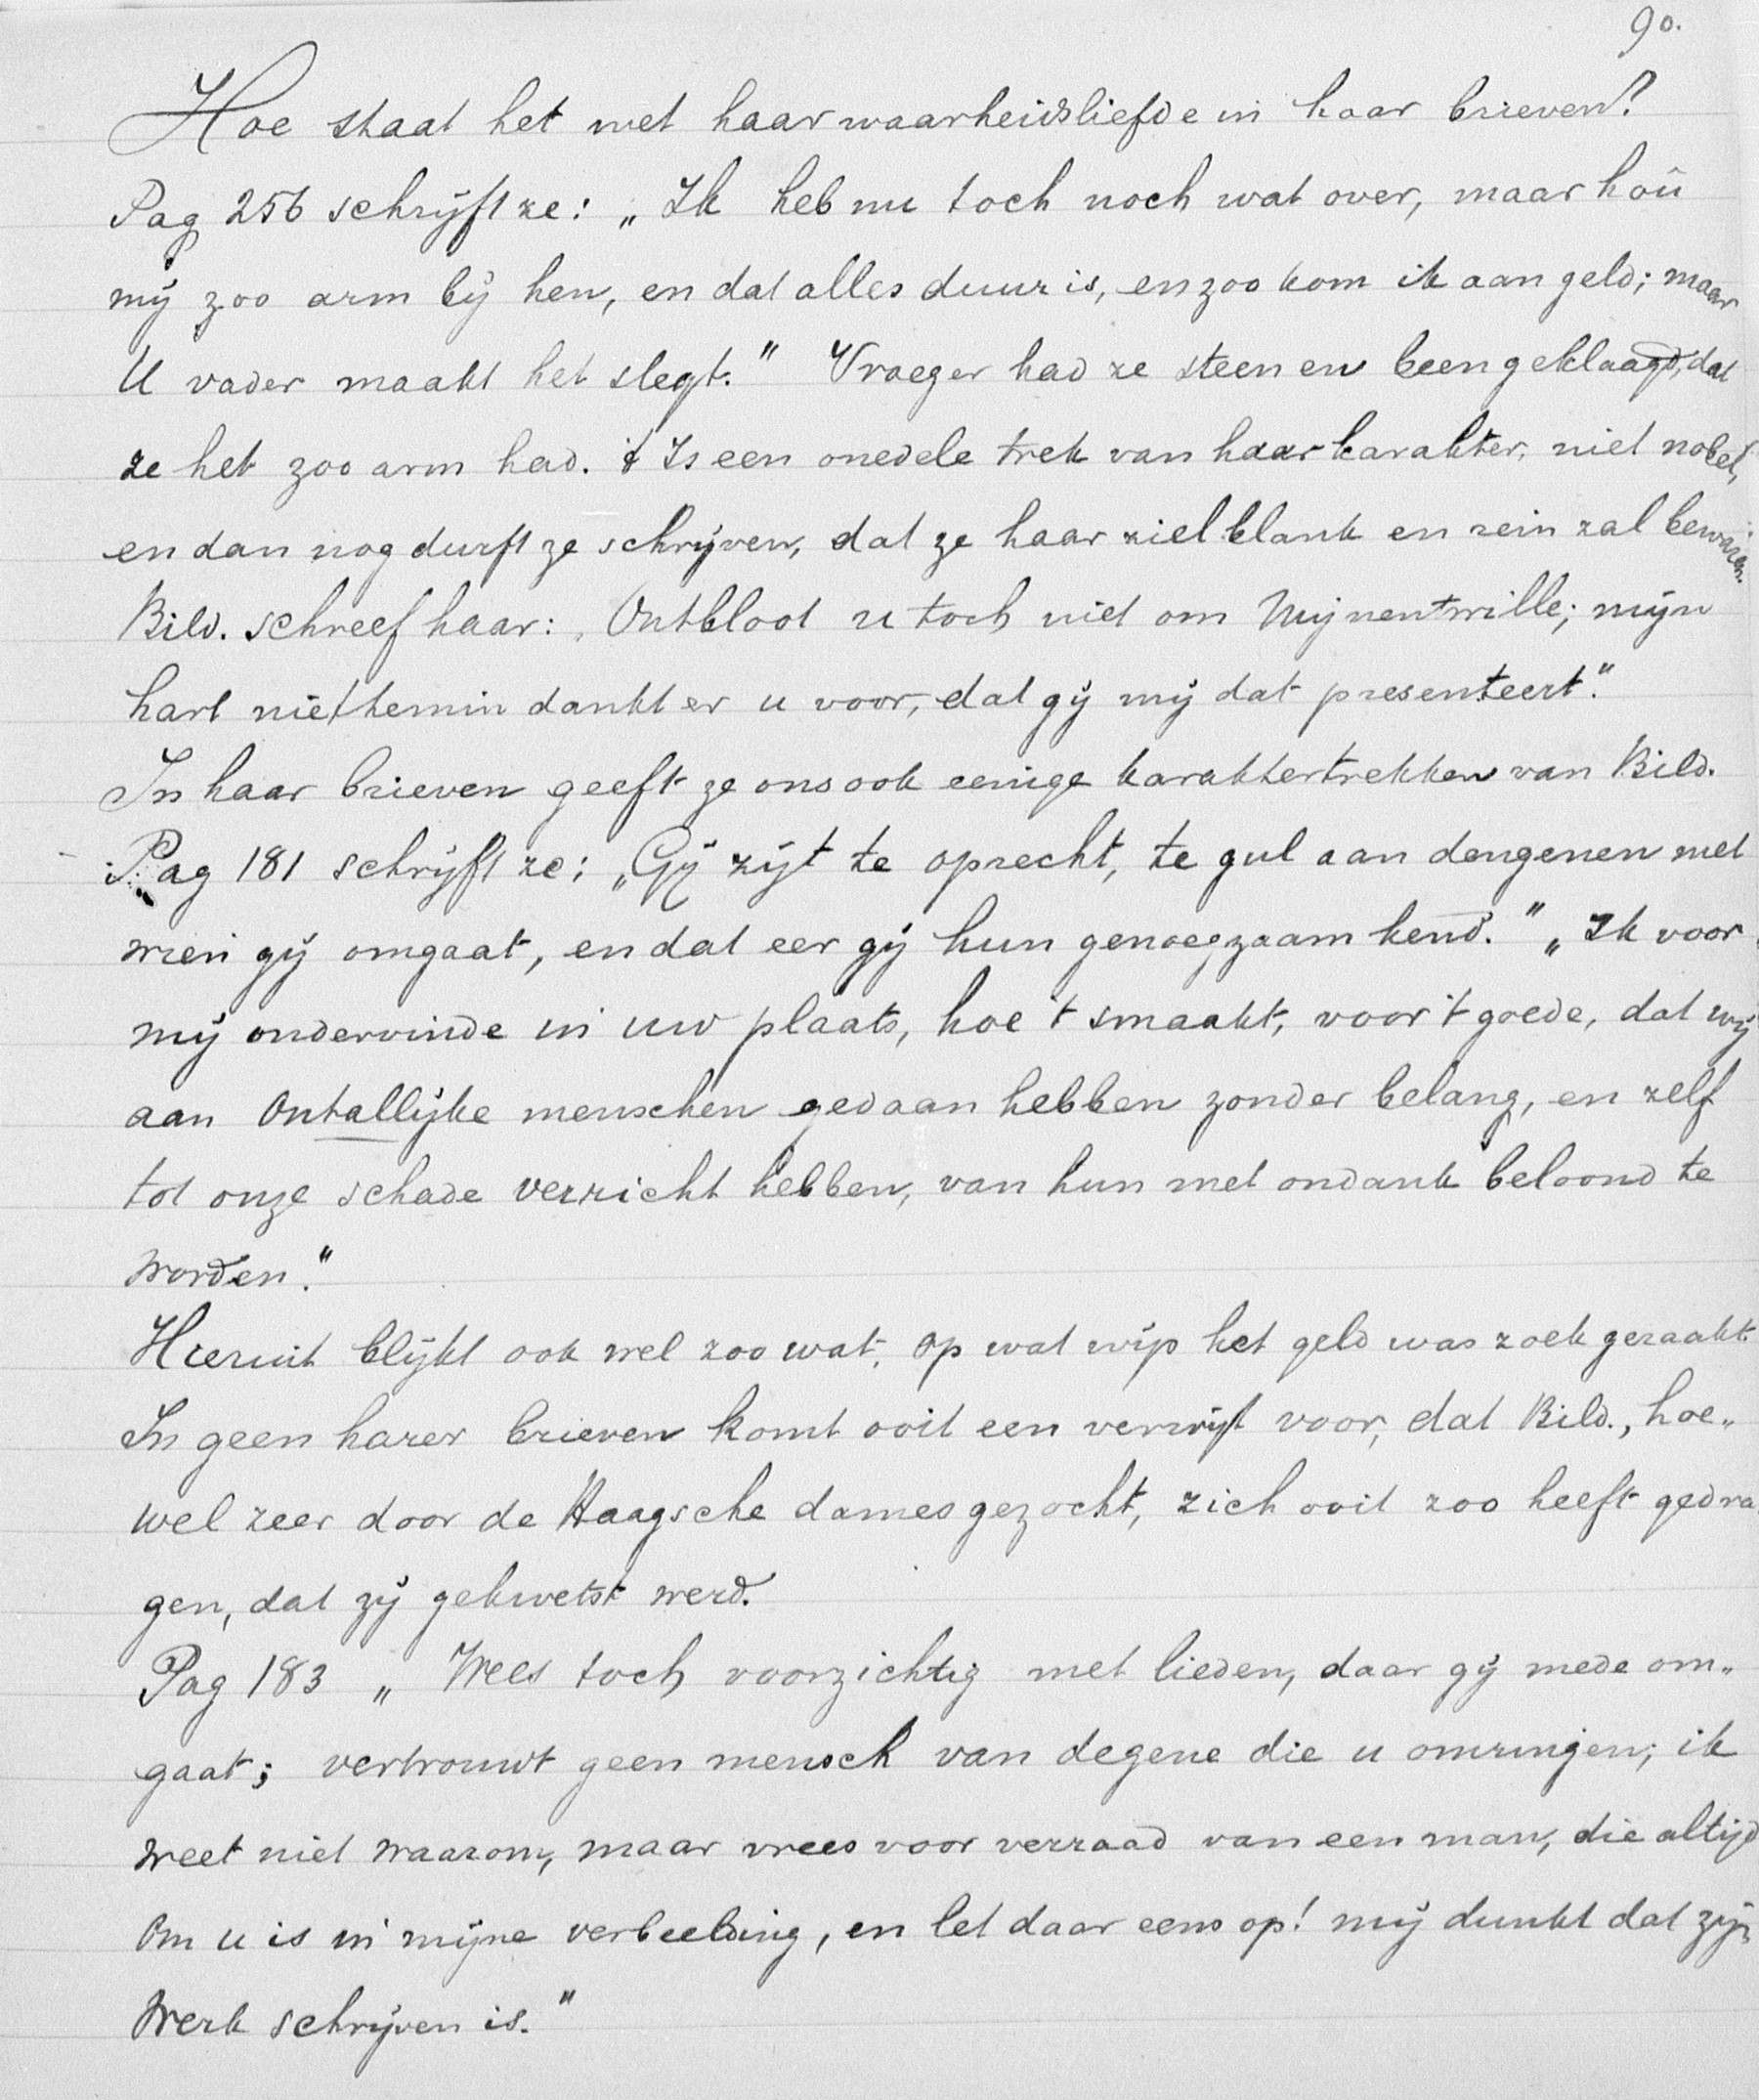 90.
Hoe staat het met haar waarheidsliefde in haar brieven?
Pag 256 schrijft ze: „Ik heb nu toch noch wat over, maar hoû
mij zoo arm bij hen, en dat alles duur is, en zoo kom ik aan geld; maar
U vader maakt het slegt." Vroeger had ze steen en been geklaagd, dat
ze het zoo arm had. 't Is een onedele trek van haar karakter, niet nobel,
en dan nog durft ze schrijven, dat ze haar ziel blank en rein zal bewaren.
Bild. schreef haar: „Ontbloot u toch niet om Mijnentwille; mijn
hart niettemin dankt er u voor, dat gij mij dat presenteert."
In haar brieven geeft ze ons ook eenige karaktertrekken van Bild.
Pag 181 schrijft ze: „Gij zijt te oprecht, te gul aan dengenen met
wien gij omgaat, en dat eer gij hun genoegzaam kend." „Ik voor
mij ondervinde in uw plaats, hoe 't smaakt, voor 't goede, dat wij
aan Ontallijke menschen gedaan hebben zonder belang, en zelf
tot onze schade verricht hebben, van hun met ondank beloond te
worden."
Hieruit blijkt ook wel zoo wat, op wat wijs het geld was zoek geraakt.
In geen harer brieven komt ooit een verwijt voor, dat Bild., hoe„
wel zeer door de Haagsche dames gezocht, zich ooit zoo heeft gedra
gen, dat zij gekwetst werd.
Pag 183 „Wees toch voorzichtig met lieden, daar gij mede om„
gaat; vertrouwt geen mensch van degene die u omringen; ik
weet niet waarom, maar vrees voor verraad van een man, die altijd
Om u is in mijne verbeelding, en let daar eens op! mij dunkt dat zijn
Werk schrijven is."